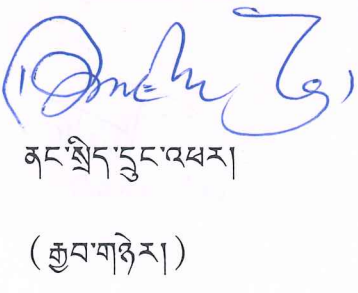 ནང་སྲིད་དྲུང་འཕར།
(རྒྱབ་གཉེར།)